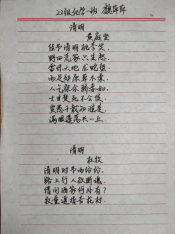 22级化学一班
清明
黄庭坚
佳节清明桃李笑,
野田荒冢只生愁。
雷惊天地龙蛇蛰,
雨足郊原草木柔。
人乞祭余骄妾妇,
士甘焚死不公侯。
贤愚千载知谁是,
满眼蓬蒿共一丘。
清明
杜牧
清明时节雨纷纷,
路上行人欲断魂。
借问酒家何处有?
牧童遥指杏花村。